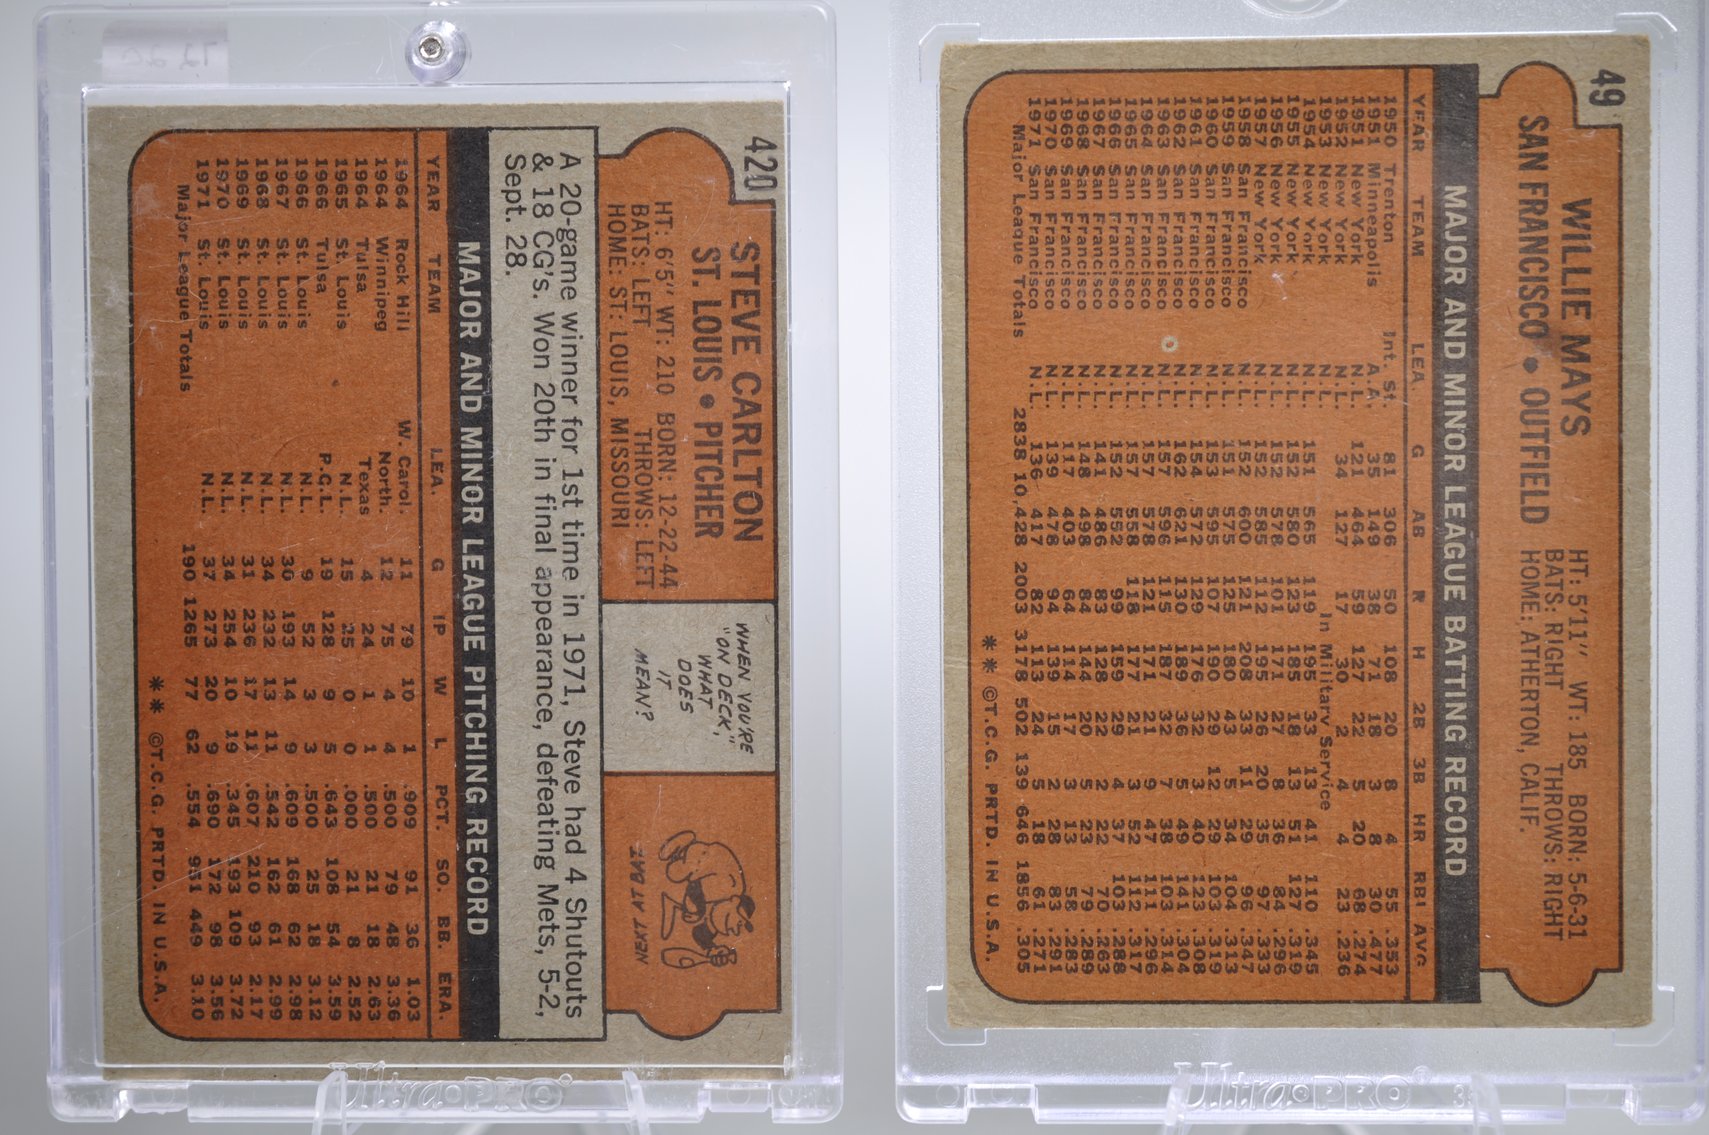 420
STEVE CARLTON
ST. LOUIS • PITCHER
HT: 6'5" WT: 210 BORN: 12-22-44
BATS: LEFT THROWS: LEFT
HOME: ST. LOUIS, MISSOURI
WHEN YOU'RE
"ON DECK,"
WHAT
DOES
IT
MEAN?
NEXT AT BAT.
A 20-game winner for 1st time in 1971, Steve had 4 Shutouts
& 18 CG's. Won 20th in final appearance, defeating Mets, 5-2,
Sept. 28.
MAJOR AND MINOR LEAGUE PITCHING RECORD
YEAR TEAM LEA. G IP W L PCT. SO. BB. ERA.
1964 Rock Hill W. Carol. 11 79 10 1 .909 91 36 1.03
1964 Winnipeg North. 12 75 4 4 .500 79 48 3.36
1964 Tulsa Texas 4 24 1 1 .500 21 18 2.63
1965 St. Louis N.L. 15 25 0 0 .000 21 8 2.52
1966 Tulsa P.C.L. 19 128 9 5 .643 108 54 3.59
1966 St. Louis N.L. 9 52 3 3 .500 25 18 3.12
1967 St. Louis N.L. 30 193 14 9 .609 168 62 2.98
1968 St. Louis N.L. 34 232 13 11 .542 162 61 2.99
1969 St. Louis N.L. 31 236 17 11 .607 210 93 2.17
1970 St. Louis N.L. 34 254 10 19 .345 193 109 3.72
1971 St. Louis N.L. 37 273 20 9 .690 172 98 3.56
Major League Totals 190 1265 77 62 .554 951 449 3.10
** ©T.C.G. PRTD. IN U.S.A.
Ultra•PRO
49
WILLIE MAYS
SAN FRANCISCO • OUTFIELD
HT: 5'11" WT: 185 BORN: 5-6-31
BATS: RIGHT THROWS: RIGHT
HOME: ATHERTON, CALIF.
MAJOR AND MINOR LEAGUE BATTING RECORD
YEAR TEAM LEA G AB R H 2B 3B HR RBI AVG
1950 Trenton Int. St. 81 306 50 108 20 8 4 55 .353
1951 Minneapolis A.A. 35 149 38 71 18 3 8 30 .477
1951 New York N.L. 121 464 59 127 22 5 20 68 .274
1952 New York N.L. 34 127 17 30 2 4 4 23 .236
1953 New York In Military Service
1954 New York N.L. 151 565 119 195 33 13 41 110 .345
1955 New York N.L. 152 580 123 185 18 13 51 127 .319
1956 New York N.L. 152 578 101 171 27 8 36 84 .296
1957 New York N.L. 152 585 112 195 26 20 35 97 .333
1958 San Francisco N.L. 152 600 121 208 33 11 29 96 .347
1959 San Francisco N.L. 151 575 125 180 43 5 34 104 .313
1960 San Francisco N.L. 153 595 107 190 29 12 29 103 .319
1961 San Francisco N.L. 154 572 129 176 32 3 40 123 .308
1962 San Francisco N.L. 162 621 130 189 36 5 49 141 .304
1963 San Francisco N.L. 157 596 115 187 32 7 38 103 .314
1964 San Francisco N.L. 157 578 121 171 21 9 47 111 .296
1965 San Francisco N.L. 157 558 118 177 21 3 52 112 .317
1966 San Francisco N.L. 152 552 99 159 29 4 37 103 .288
1967 San Francisco N.L. 141 486 83 128 22 2 22 70 .263
1968 San Francisco N.L. 148 498 84 144 20 5 23 79 .289
1969 San Francisco N.L. 117 403 64 114 17 3 13 58 .283
1970 San Francisco N.L. 139 478 94 139 15 2 28 83 .291
1971 San Francisco N.L. 136 417 82 113 24 5 18 61 .271
Major League Totals 2838 10,428 2003 3178 502 139 646 1856 .305
** ©T.C.G. PRTD. IN U.S.A.
Ultra•PRO